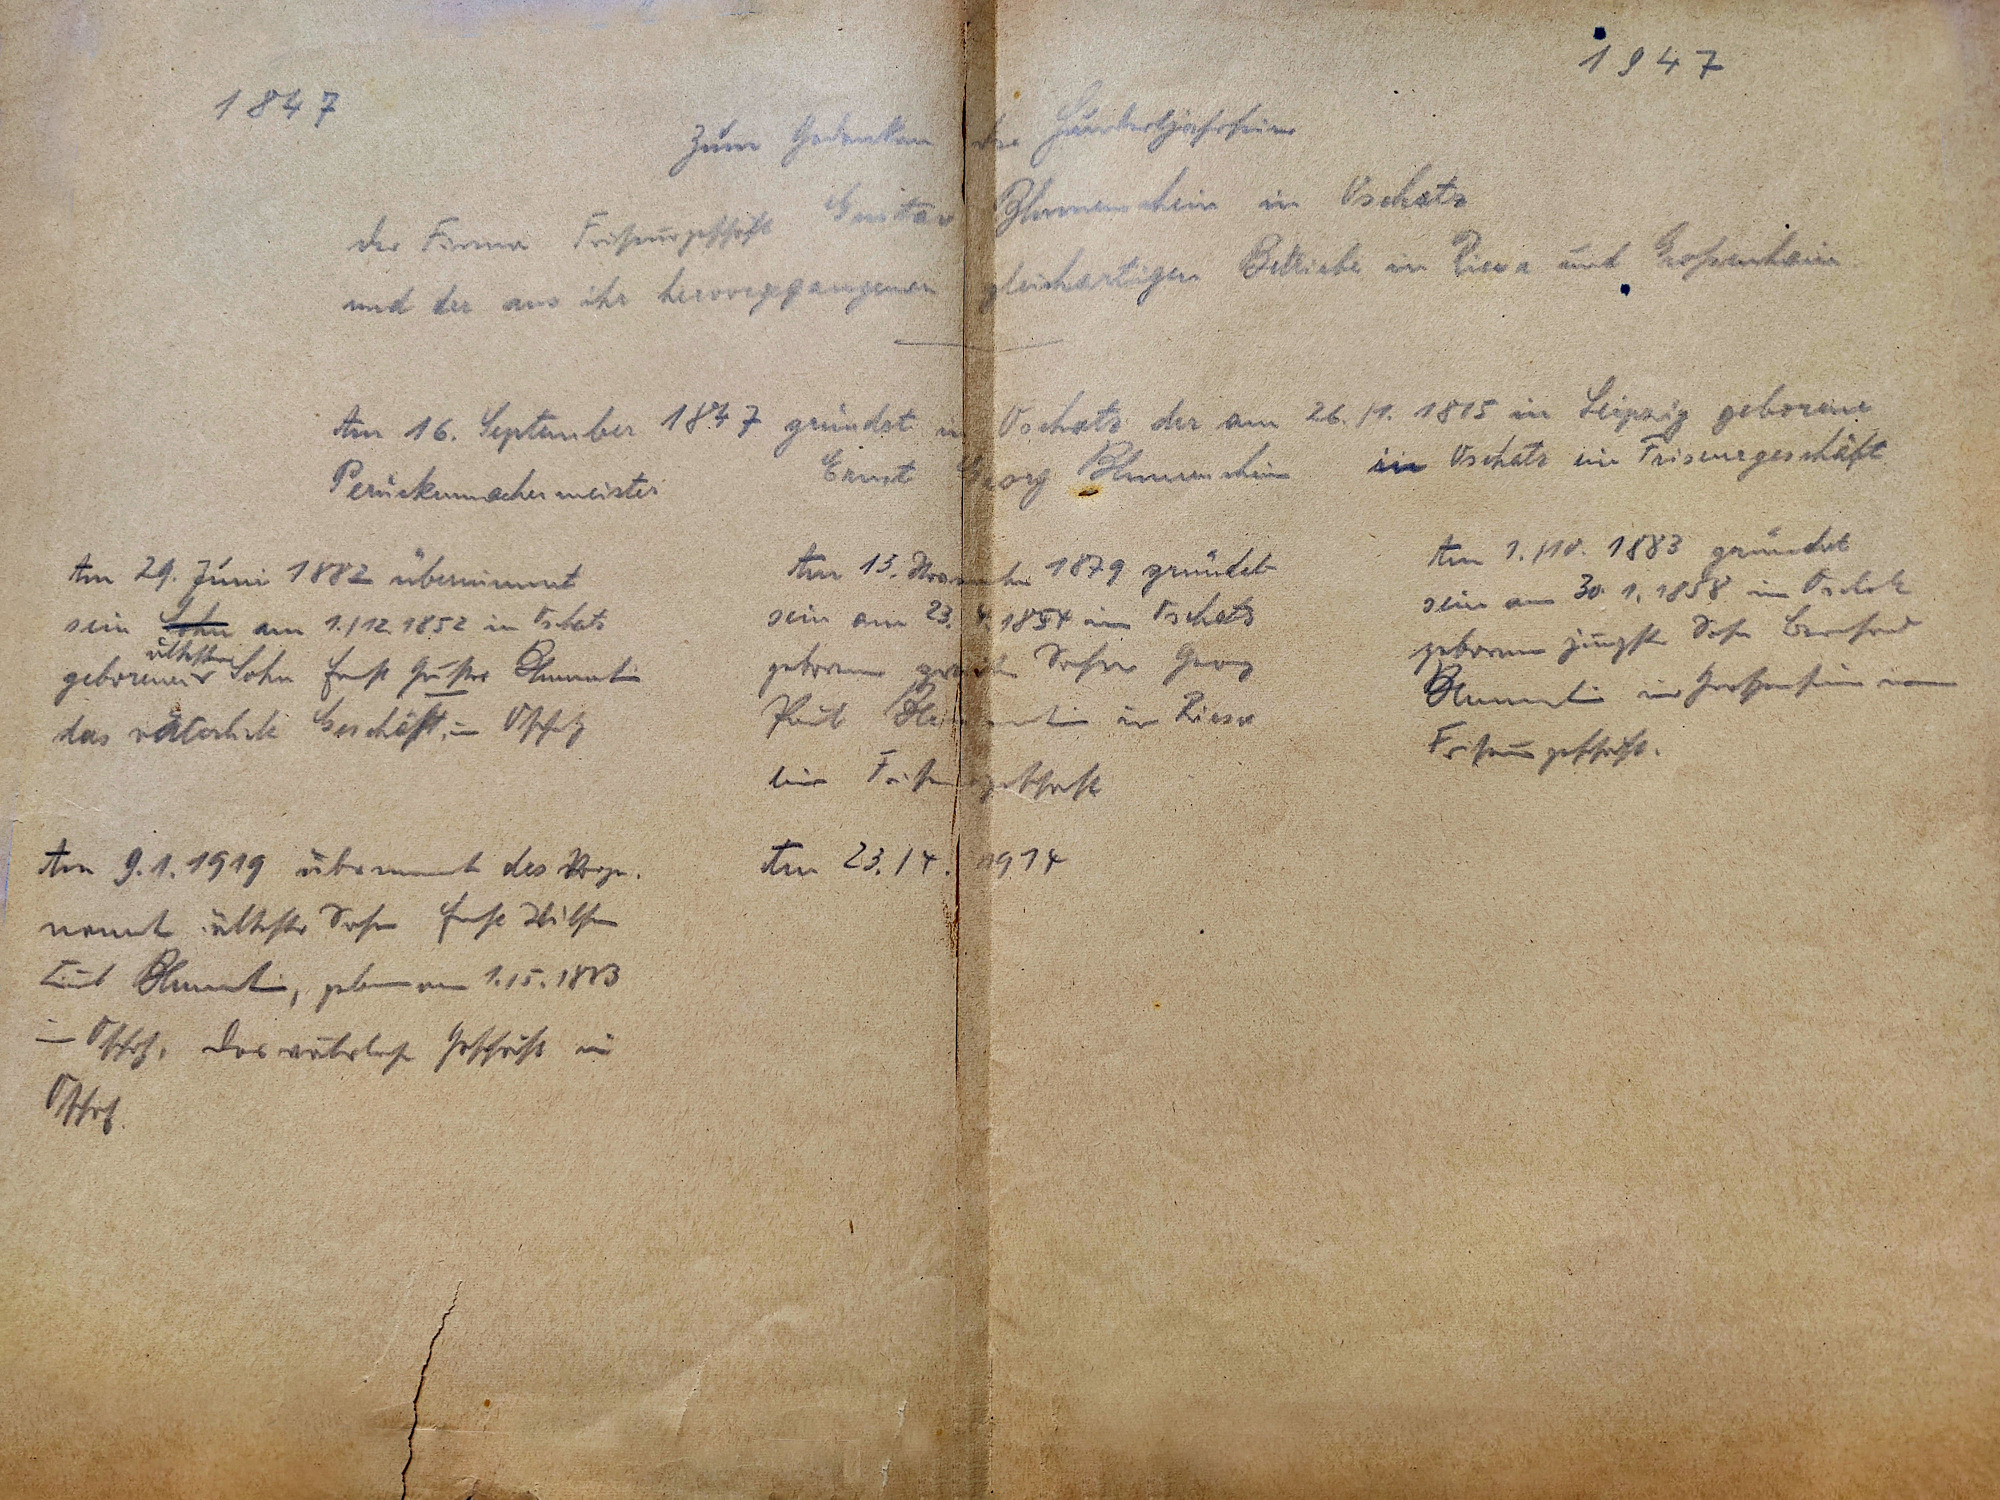 1847
1947
Zum Gedenken der Hundertjahrfeier
der Firma Friseurgeschäft Gustav Blumenschein in Oschatz
und der aus ihr hervorgegangenen gleichartigen Betriebe in Riesa und Großenhain
Am 16. September 1847 gründet in Oschatz der am 26./1. 1815 in Leipzig geborene
Perückenmachermeister Ernst Georg Blumenschein in Oschatz ein Friseurgeschäft
Am 29. Juni 1882 übernimmt
sein Sohn am 1./12.1852 in Oschatz
ältester
geborener Sohn Ernst Gustav
das väterliche Geschäft in Oschatz
Am 9.1.1919 übernimmt des Vorge-
nannt ältester Sohn Ernst
geboren am 1./5.
in Oschatz, das väterliche Geschäft in
Oschatz.
Am 15. November 1879 gründet
sein am 23. 4 1854 in Oschatz
geboren zweiter Sohn Georg
in Riesa
ein Friseurgeschäft
Am 23./4. 1914
Am 1./10. 1883 gründet
sein am 30.1.1858 in Oschatz
geboren jüngster Sohn Bernhard
in Großenhain
Friseurgeschäft.